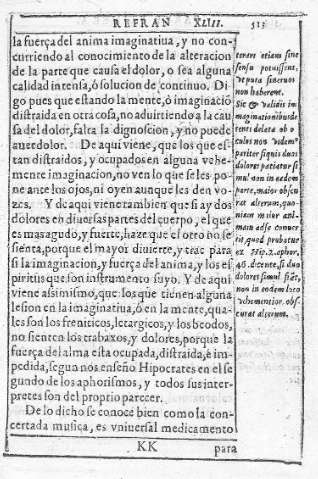 REFRAN XLIII. 513
la fuerça del anima imaginatiua, y no con-
curriendo al conocimiento de la alteracion
de la parte que causa el dolor, o sea alguna
calidad intensa, ó solucion de continuo. Di
go pues que estando la mente, ó imaginació
distraida en otra cosa, no aduirtiendo a la cau
sa del dolor, falta la dignoscion, y no puede
auer dolor. De aqui viene, que los que es-
tan distraidos, y ocupados en alguna vehe-
mente imaginacion, no ven lo que se les po-
ne ante los ojos, ni oyen aunque les den vo-
zes. Y de aqui viene tambien que si ay dos
dolores en diuersas partes del cuerpo, el que
es mas agudo, y fuerte, haze que el otro no se
sienta, porque el mayor diuierte, y trae para
si la imaginacion, y fuerça del anima, y los es
piritus que son instrumento suyo. Y de aqui
viene assimismo, que los que tienen alguna
lesion en la imaginatiua, ó en la mente, qua-
les son los freniticos, letargicos, y los beodos,
no sienten los trabaxos, y dolores, porque la
fuerça del alma esta ocupada, distraida, è im-
pedida, segun nos enseño Hipocrates en el se
gundo de los aphorismos, y todos sus inter-
pretes son del proprio parecer.
De lo dicho se conoce bien como la con-
certada musica, es vniuersal medicamento
KK para
tenere etiam sine
sensu potuissent,
ut puta sineruos
non haberent.
Sic & validis im
maginationibus de
tenti delata ob o
culos non vident
pariter siquis duos
dolores patietur si
mul non in eadem
parte, maior obscu
rat alterum, quo-
niam maior ani-
mam ad se conuer
tit, quod probatur
ex Hip. 2. aphor.
46. dicente, si duo
dolores simul fiāt,
non in eodem loco
vehementior obs-
curat alterum.